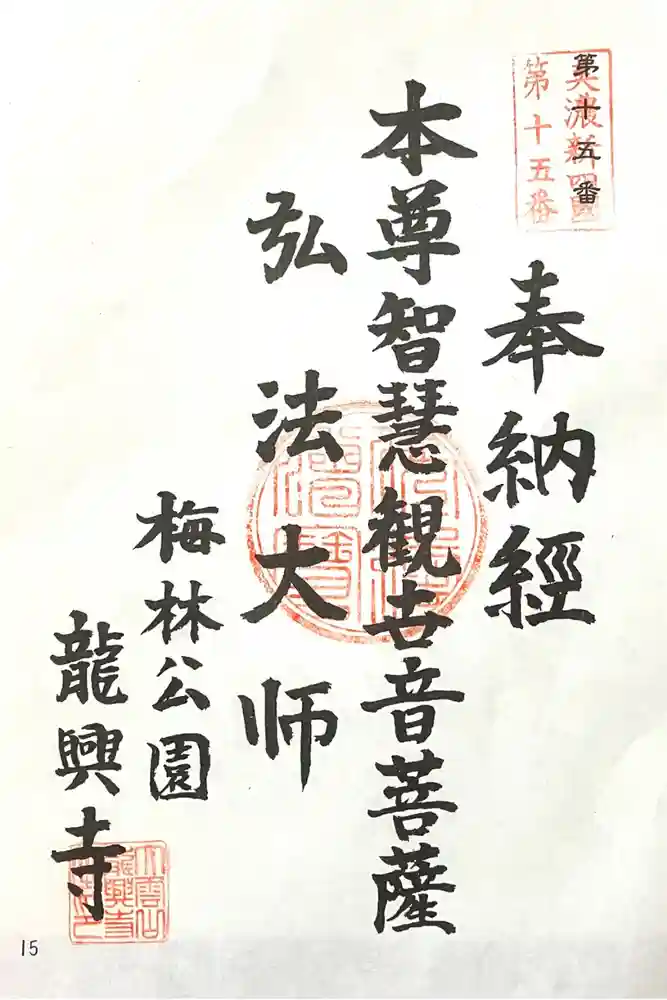 第十五番
美濃新四國
第十五番
奉納經
本尊智慧観世音菩薩
弘法大师
梅林公園
龍興寺
15